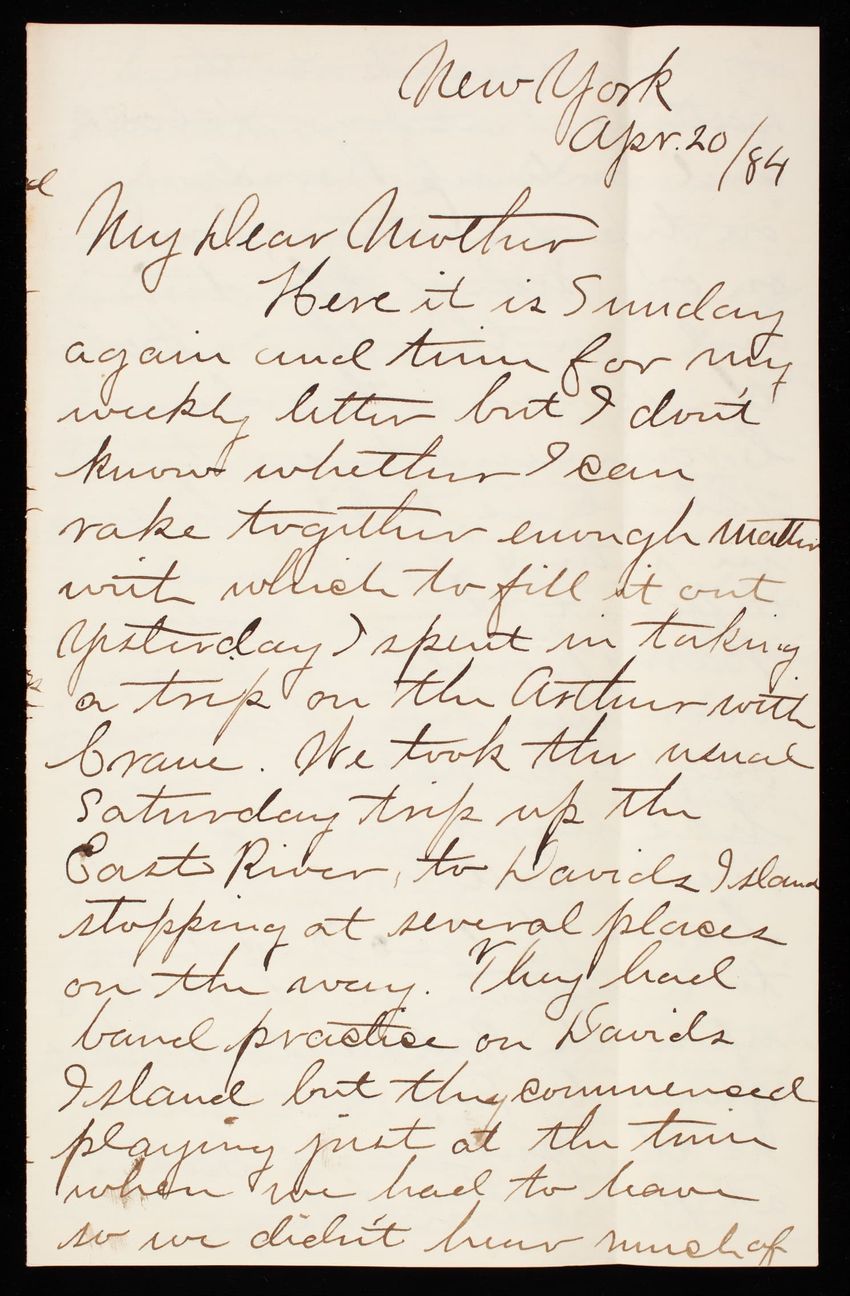 New York
Apr. 20/84
My Dear Mother
Here it is Sunday
again and time for my
weekly letter but I don't
know whether I can
rake together enough matter
with which to fill it out
Yesterday I spent in taking
a trip on the Arthur with
Crane. We took the usual
Saturday trip up the
East River, to Davids Island
stopping at several places
on the way. They had
band practice on Davids
Island but they commenced
playing just at the time
when we had to leave
so we didn't hear much of